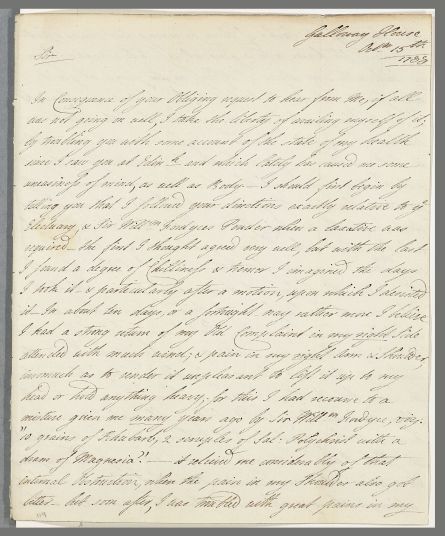 Galloway House
Octr. 15th.
1788
Sir
In Consequence of your Obliging request to hear from Me, if all
was not going on well, I take the liberty of availing myself of it;
by troubling you with some account of the state of my health
since I saw you at Edinr. and which lately has caused me some
uneasiness of mind, as well as Body — I should first begin by
telling you that I followed your directions exactly relative to ye
Electuary, & Sir Willm Fordyces Powder when a laxative was
required — the first I thought agreed very well, but with the last
I found a degree of Chilliness & I imagined the days
I took it — & particularly after a motion, upon which I desisted
it — In about ten days, or a fortnight may rather more I believe
I had a strong return of my Old Complaint in my right Side
attended with much wind; & pain in my right Arm & Shoulder
inasmuch as to render it unpleasant to lift it up to my
head or hold anything heavy; for this I had recourse to a
mixture given me many years ago by Sir Willm Fordyce, viz:
"10 grains of Rhubarb, 2 scruples of Sal: Polychrist with a
dram of Magnesia". — It relieved me considerably of that
internal , when the pain in my Shoulder also got
better — but soon after, I was troubled with great pains in my